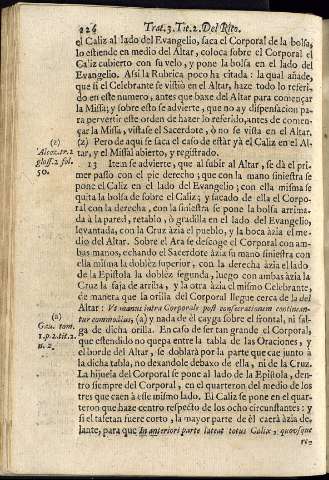 226 Trat.3. Tit.2. Del Rito.
el Caliz al lado del Evangelio, saca el Corporal de la bolsa,
lo estiende en medio del Altar, coloca sobre el Corporal el
Caliz cubierto con su velo, y pone la bolsa en el lado del
Evangelio. Assi la Rubrica poco ha citada: la qual añade,
que si el Celebrante se vistiò en el Altar, haze todo lo referi-
do en este numero, antes que baxe del Altar para començar
la Missa; y sobre esto se advierte, que no ay dispensacion pa-
ra pervertir este orden de hazer lo referido, antes de comen-
çar la Missa, vistase el Sacerdote, ò no se vista en el Altar.
(z) Pero de aqui se saca el caso de estàr yà el Caliz en el Al-
tar, y el Missal abierto, y registrado.
(z)
Alcoz. tr. 2
gloss. 2 fol.
50.
13 Iten se advierte, que al subir al Altar, se dà el pri-
mer passo con el pie derecho; que con la mano siniestra se
pone el Caliz en el lado del Evangelio; con ella misma se
quita la bolsa de sobre el Caliz; y sacado de ella el Corpo-
ral con la derecha, con la siniestra se pone la bolsa arrima-
da à la pared, retablo, ò gradilla en el lado del Evangelio,
levantada, con la Cruz àzia el pueblo, y la boca àzia el me-
dio del Altar. Sobre el Ara se descoge el Corporal con am-
bas manos, echando el Sacerdote àzia su mano siniestra con
ella misma la doblez superior, con la derecha àzia el lado
de la Epistola la doblez segunda, luego con ambas àzia la
Cruz la saja de arriba, y la otra àzia el mismo Celebrante;
de manera que la orilla del Corporal llegue cerca de la del
Altar: Vt manus intra Corporale post consecrationem continean-
tur commodius, (a) y nada de el cayga sobre el frontal, ni sal-
ga de dicha orilla. En caso de ser tan grande el Corporal,
que estendido no quepa entre la tabla de las Oraciones, y
el borde del Altar, se doblarà por la parte que cae junto à
la dicha tabla, no dexandole debaxo de ella, ni de la Cruz.
(a)
Gau. tom.
1. p. 2. tit. 2.
n. 2.
La hijuela del Corporal se pone al lado de la Epistola, den-
tro siempre del Corporal, en el quarteron del medio de los
tres que caen à esse mismo lado. El Caliz se pone en el quar-
teron que haze centro respecto de los ocho circunstantes: y
si el tafetan fuere corto, la mayor parte de èl caerà àzia de-
lante, para que In anteriori parte lateat totus Calix, quousque